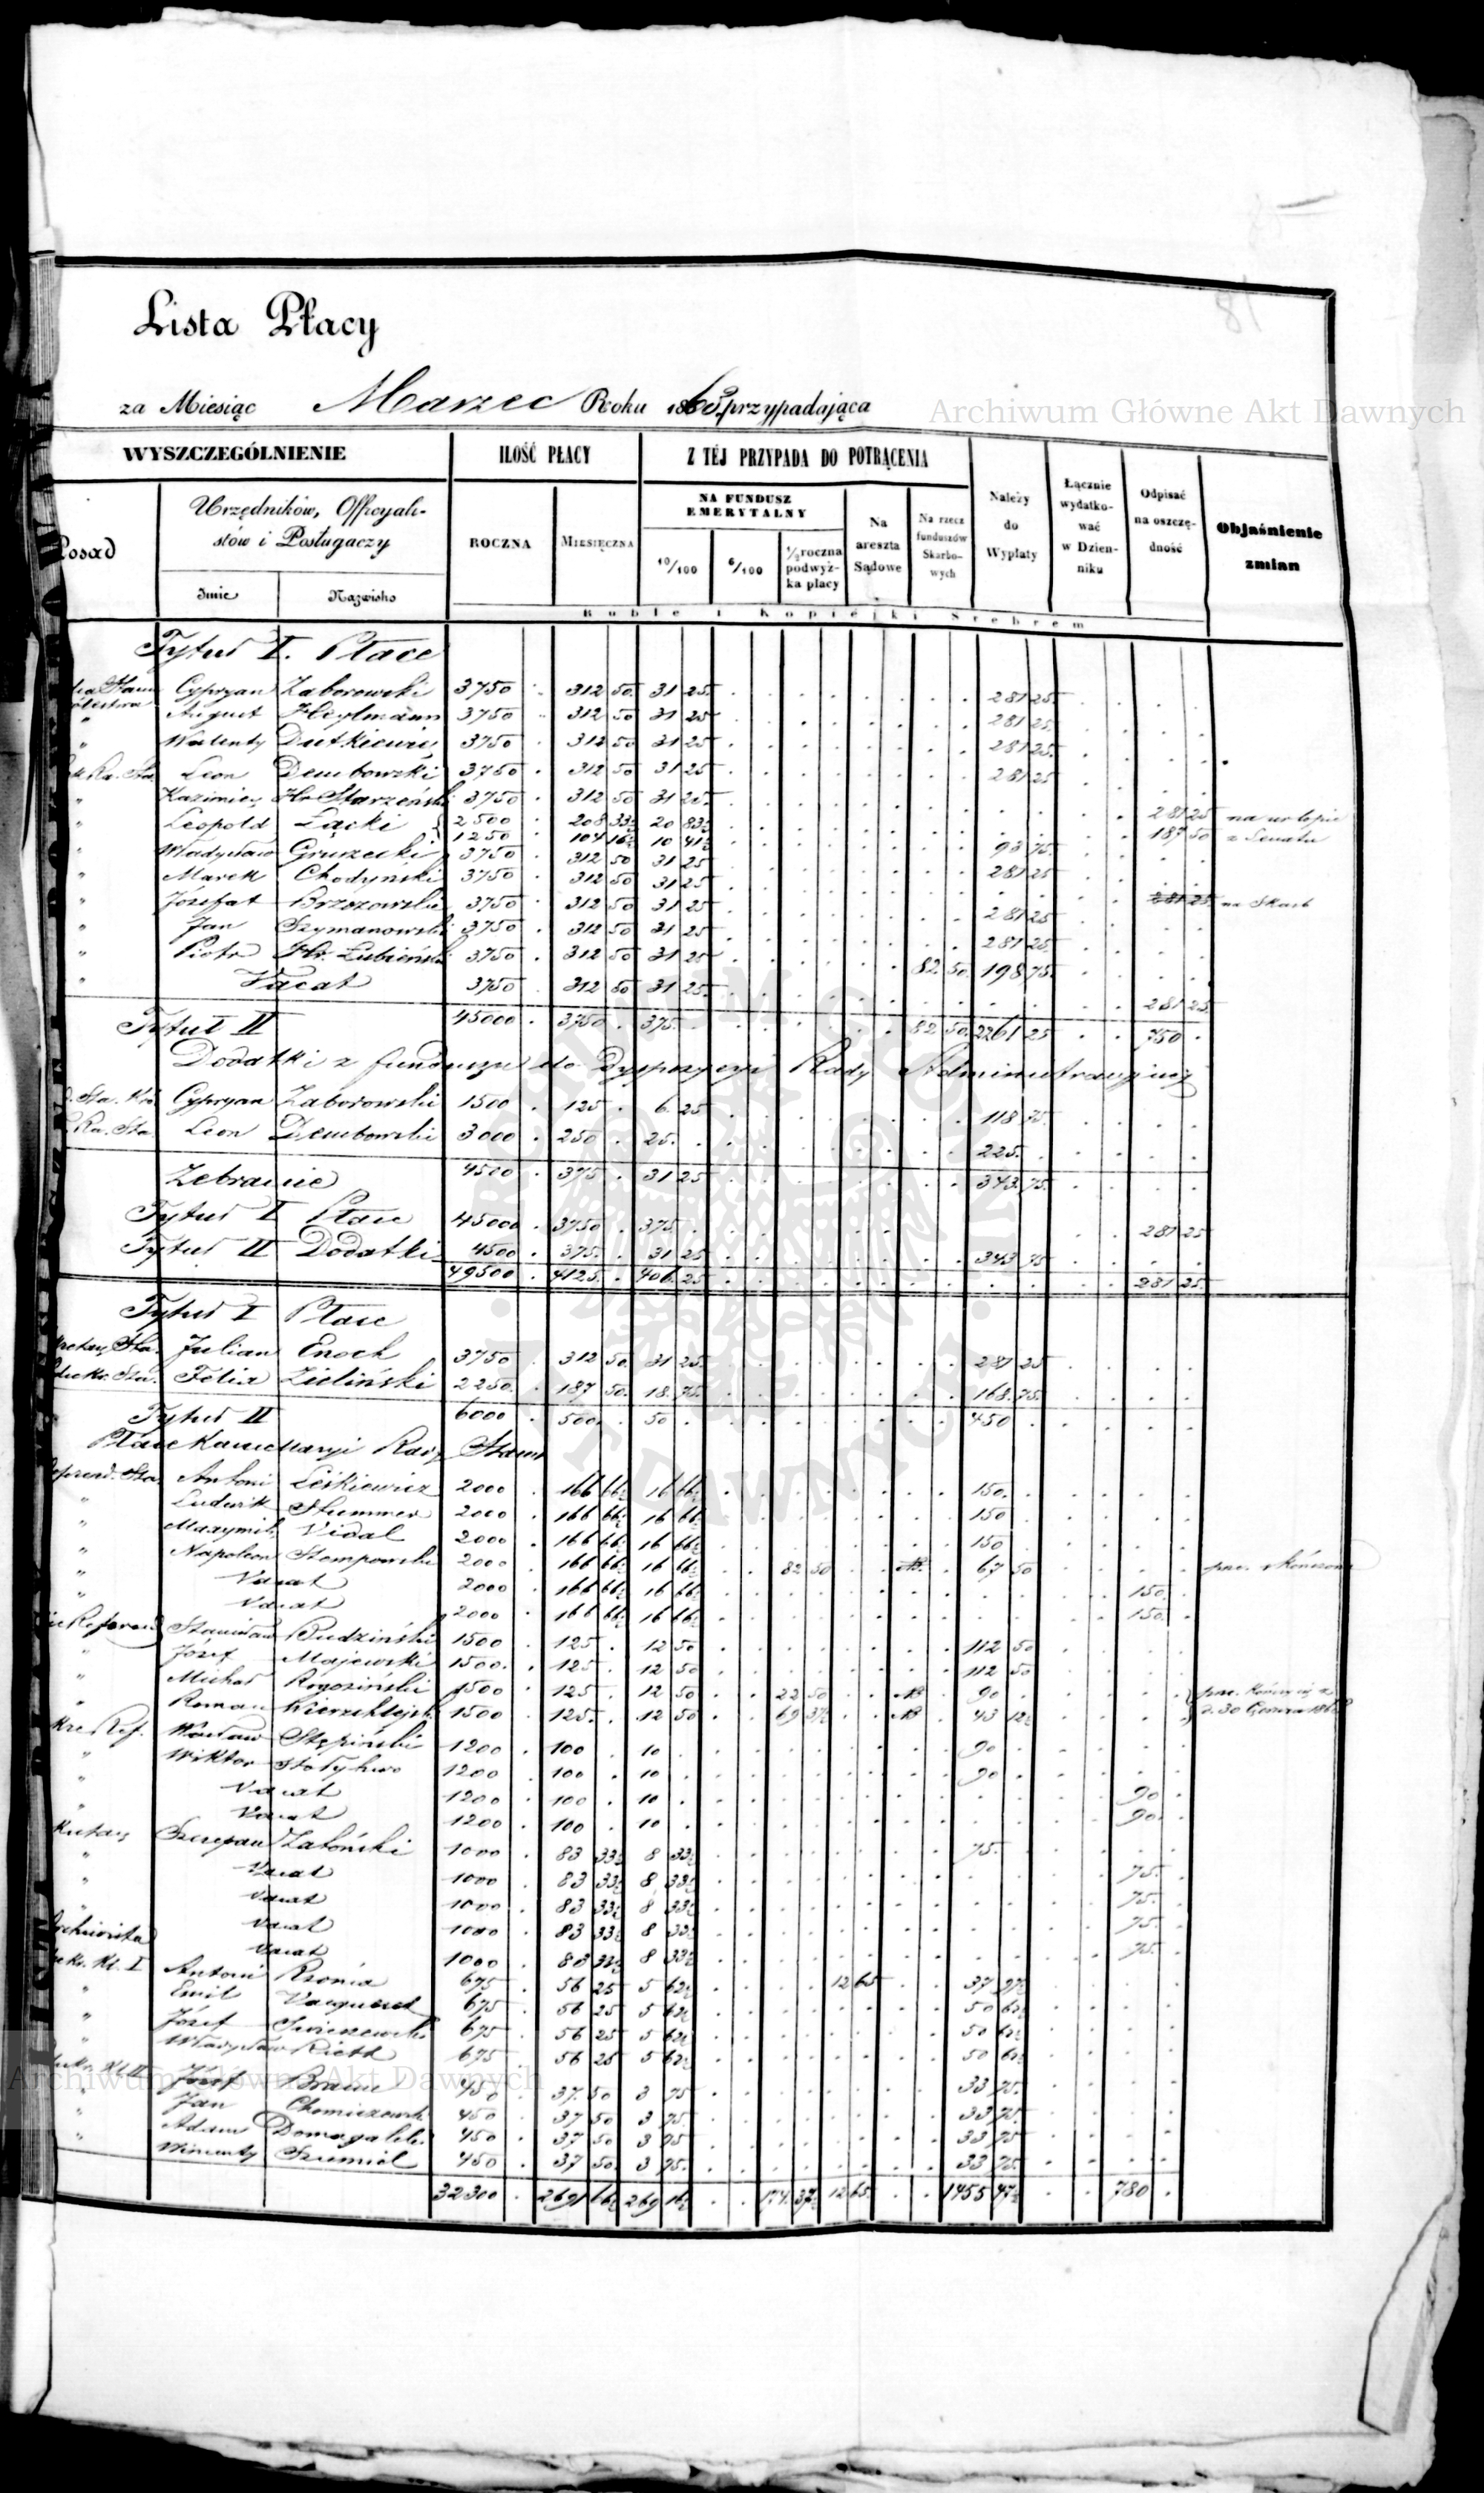 Lista Płacy
za Miesiąc Marzec Roku 1865 przypadająca
Archiwum Główne Akt Dawnych
WYSZCZEGÓLNIENIE
ILOŚĆ PŁACY
Z TÉJ PRZYPADA DO POTRĄCENIA
Należy do Wypłaty
Łącznie wydatkować w Dzienniku
Odpisać na oszczędność
Objaśnienie zmian
Posad
Urzędników, Officyalistów i Posługaczy
Imie
Nazwisko
ROCZNA
MIESIĘCZNA
NA FUNDUSZ EMERYTALNY
10/100
6/100
1/4 roczna podwyżka płacy
Na areszta Sądowe
Na rzecz funduszów Skarbowych
Ruble i Kopiejki Srebrem
Tytuł I. Płace
Cypryan Zaborowski 3750 . 312 50 31 25 281 25
" August Heylmann 3750 . 312 50 31 25 281 25
" Walenty Dutkiewicz 3750 . 312 50 31 25 281 25
Leon Dembowski 3750 . 312 50 31 25 281 25
" Kazimierz Hr. Starzeński 3750 . 312 50 31 25 281 25 na urlopie
" Leopold Łącki 2500 . 208 33 1/3 20 83 1/3 187 50 z Senatu
1250 . 104 16 2/3 10 41 2/3 93 75
" Władysław Gruzecki 3750 . 312 50 31 25 281 25
" Marek Chodyński 3750 . 312 50 31 25 281 25 na Skarb
" Józefat Brzozowski 3750 . 312 50 31 25 281 25
" Jan Szymanowski 3750 . 312 50 31 25 281 25
" Piotr Hr. Łubieński 3750 . 312 50 31 25 82 50 198 75
" Vacat 3750 . 312 50 31 25 281 25
45000 . 3750 . 375 . 82 50 2261 25 750 .
Tytuł II
Dodatki z funduszu do Dyspozycyi Rady Administracyjnej
Cypryan Zaborowski 1500 . 125 . 6 25 118 75
Leon Dembowski 3000 . 250 . 25 . 225 .
4500 . 375 . 31 25 343 75
Zebranie
Tytuł I Płace 45000 . 3750 . 375 . 281 25
Tytuł II Dodatki 4500 . 375 . 31 25 343 75
49500 . 4125 . 406 25 281 25
Tytuł I Płace
Julian Enoch 3750 . 312 50 31 25 281 25
Felix Zieliński 2250 . 187 50 18 75 168 75
6000 . 500 . 50 . 450 .
Tytuł II
Płace Kancellaryi Rady Stanu
Antoni Leśkiewicz 2000 . 166 66 2/3 16 66 2/3 150 .
" Ludwik Stummer 2000 . 166 66 2/3 16 66 2/3 150 .
" Maxymil. Vidal 2000 . 166 66 2/3 16 66 2/3 150 .
" Napoleon Stempowski 2000 . 166 66 2/3 16 66 2/3 82 50 67 50
" Vacat 2000 . 166 66 2/3 16 66 2/3 150 .
" Vacat 2000 . 166 66 2/3 16 66 2/3 150 .
Stanisław Budziński 1500 . 125 . 12 50 112 50
" Józef Majewski 1500 . 125 . 12 50 112 50
" Michał Rogoziński 1500 . 125 . 12 50 22 50 90 .
" Roman Wierzchlejski 1500 . 125 . 12 50 69 37 1/2 43 12 1/2
Wacław Stępiński 1200 . 100 . 10 . 90 .
" Wiktor Stołyhwo 1200 . 100 . 10 . 90 .
" Vacat 1200 . 100 . 10 . 90 .
" Vacat 1200 . 100 . 10 . 90 .
Szczepan Zatoński 1000 . 83 33 1/3 8 33 1/3 75 .
" Vacat 1000 . 83 33 1/3 8 33 1/3 75 .
" Vacat 1000 . 83 33 1/3 8 33 1/3 75 .
" Vacat 1000 . 83 33 1/3 8 33 1/3 75 .
Archiwista Vacat 1000 . 83 33 1/3 8 33 1/3 75 .
Antoni 675 . 56 25 5 62 1/2 12 65 37 97 1/2
" Emil Vacqueret 675 . 56 25 5 62 1/2 50 62 1/2
" Józef 675 . 56 25 5 62 1/2 50 62 1/2
" Władysław Rieth 675 . 56 25 5 62 1/2 50 62 1/2
Józef Braun 450 . 37 50 3 75 33 75
" Jan 450 . 37 50 3 75 33 75
" Adam Domagalski 450 . 37 50 3 75 33 75
" Wincenty Szumiel 450 . 37 50 3 75 33 75
32300 . 2691 66 2/3 269 16 2/3 174 37 1/2 12 65 1455 47 1/2 780 .
Archiwum Główne Akt Dawnych